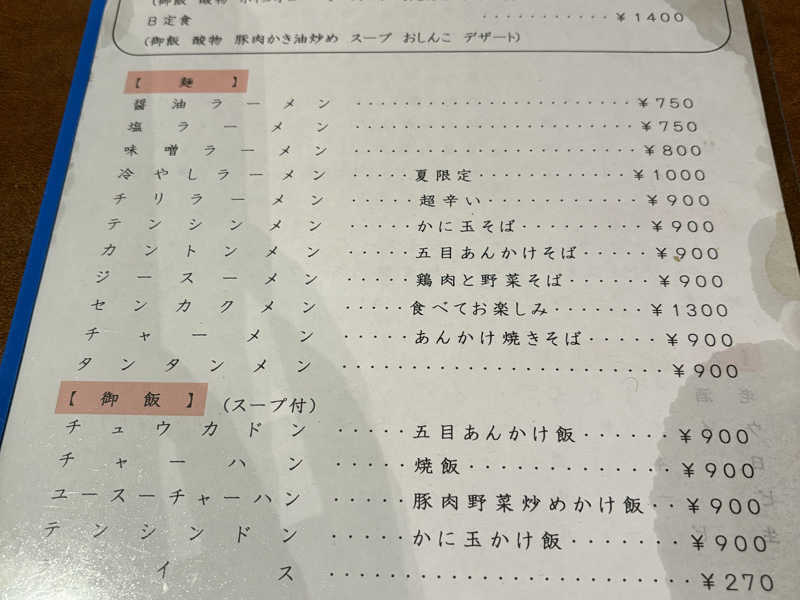 B定食 ・・・・・・・・・・・¥1400
(御飯 酸物 豚肉かき油炒め スープ おしんこ デザート)
【 麺 】
醤油ラーメン ・・・・・・・・・・・・・・・・・・・・・・・・¥750
塩ラーメン ・・・・・・・・・・・・・・・・・・・・・・・・¥750
味噌ラーメン ・・・・・・・・・・・・・・・・・・・・・・・・¥800
冷やしラーメン ・・・・・夏限定・・・・・・・・・・・・¥1000
チリラーメン ・・・・・超辛い・・・・・・・・・・・・¥900
テンシンメン ・・・・・かに玉そば・・・・・・・・・¥900
カントンメン ・・・・・五目あんかけそば・・・・・¥900
ジースーメン ・・・・・鶏肉と野菜そば・・・・・・¥900
センカクメン ・・・・・食べてお楽しみ・・・・・・・¥1300
チャーメン ・・・・・あんかけ焼きそば・・・・・¥900
タンタンメン ・・・・・・・・・・・・・・・・・・・・・・・・¥900
【 御飯 】 (スープ付)
チュウカドン ・・・・・五目あんかけ飯・・・・・・¥900
チャーハン ・・・・・焼飯・・・・・・・・・・・・・¥900
ユースーチャーハン ・・・・・豚肉野菜炒めかけ飯・・¥900
テンシンドン ・・・・・かに玉かけ飯・・・・・・・¥900
イス ・・・・・・・・・・・・・・・・・・・・・・・・¥270